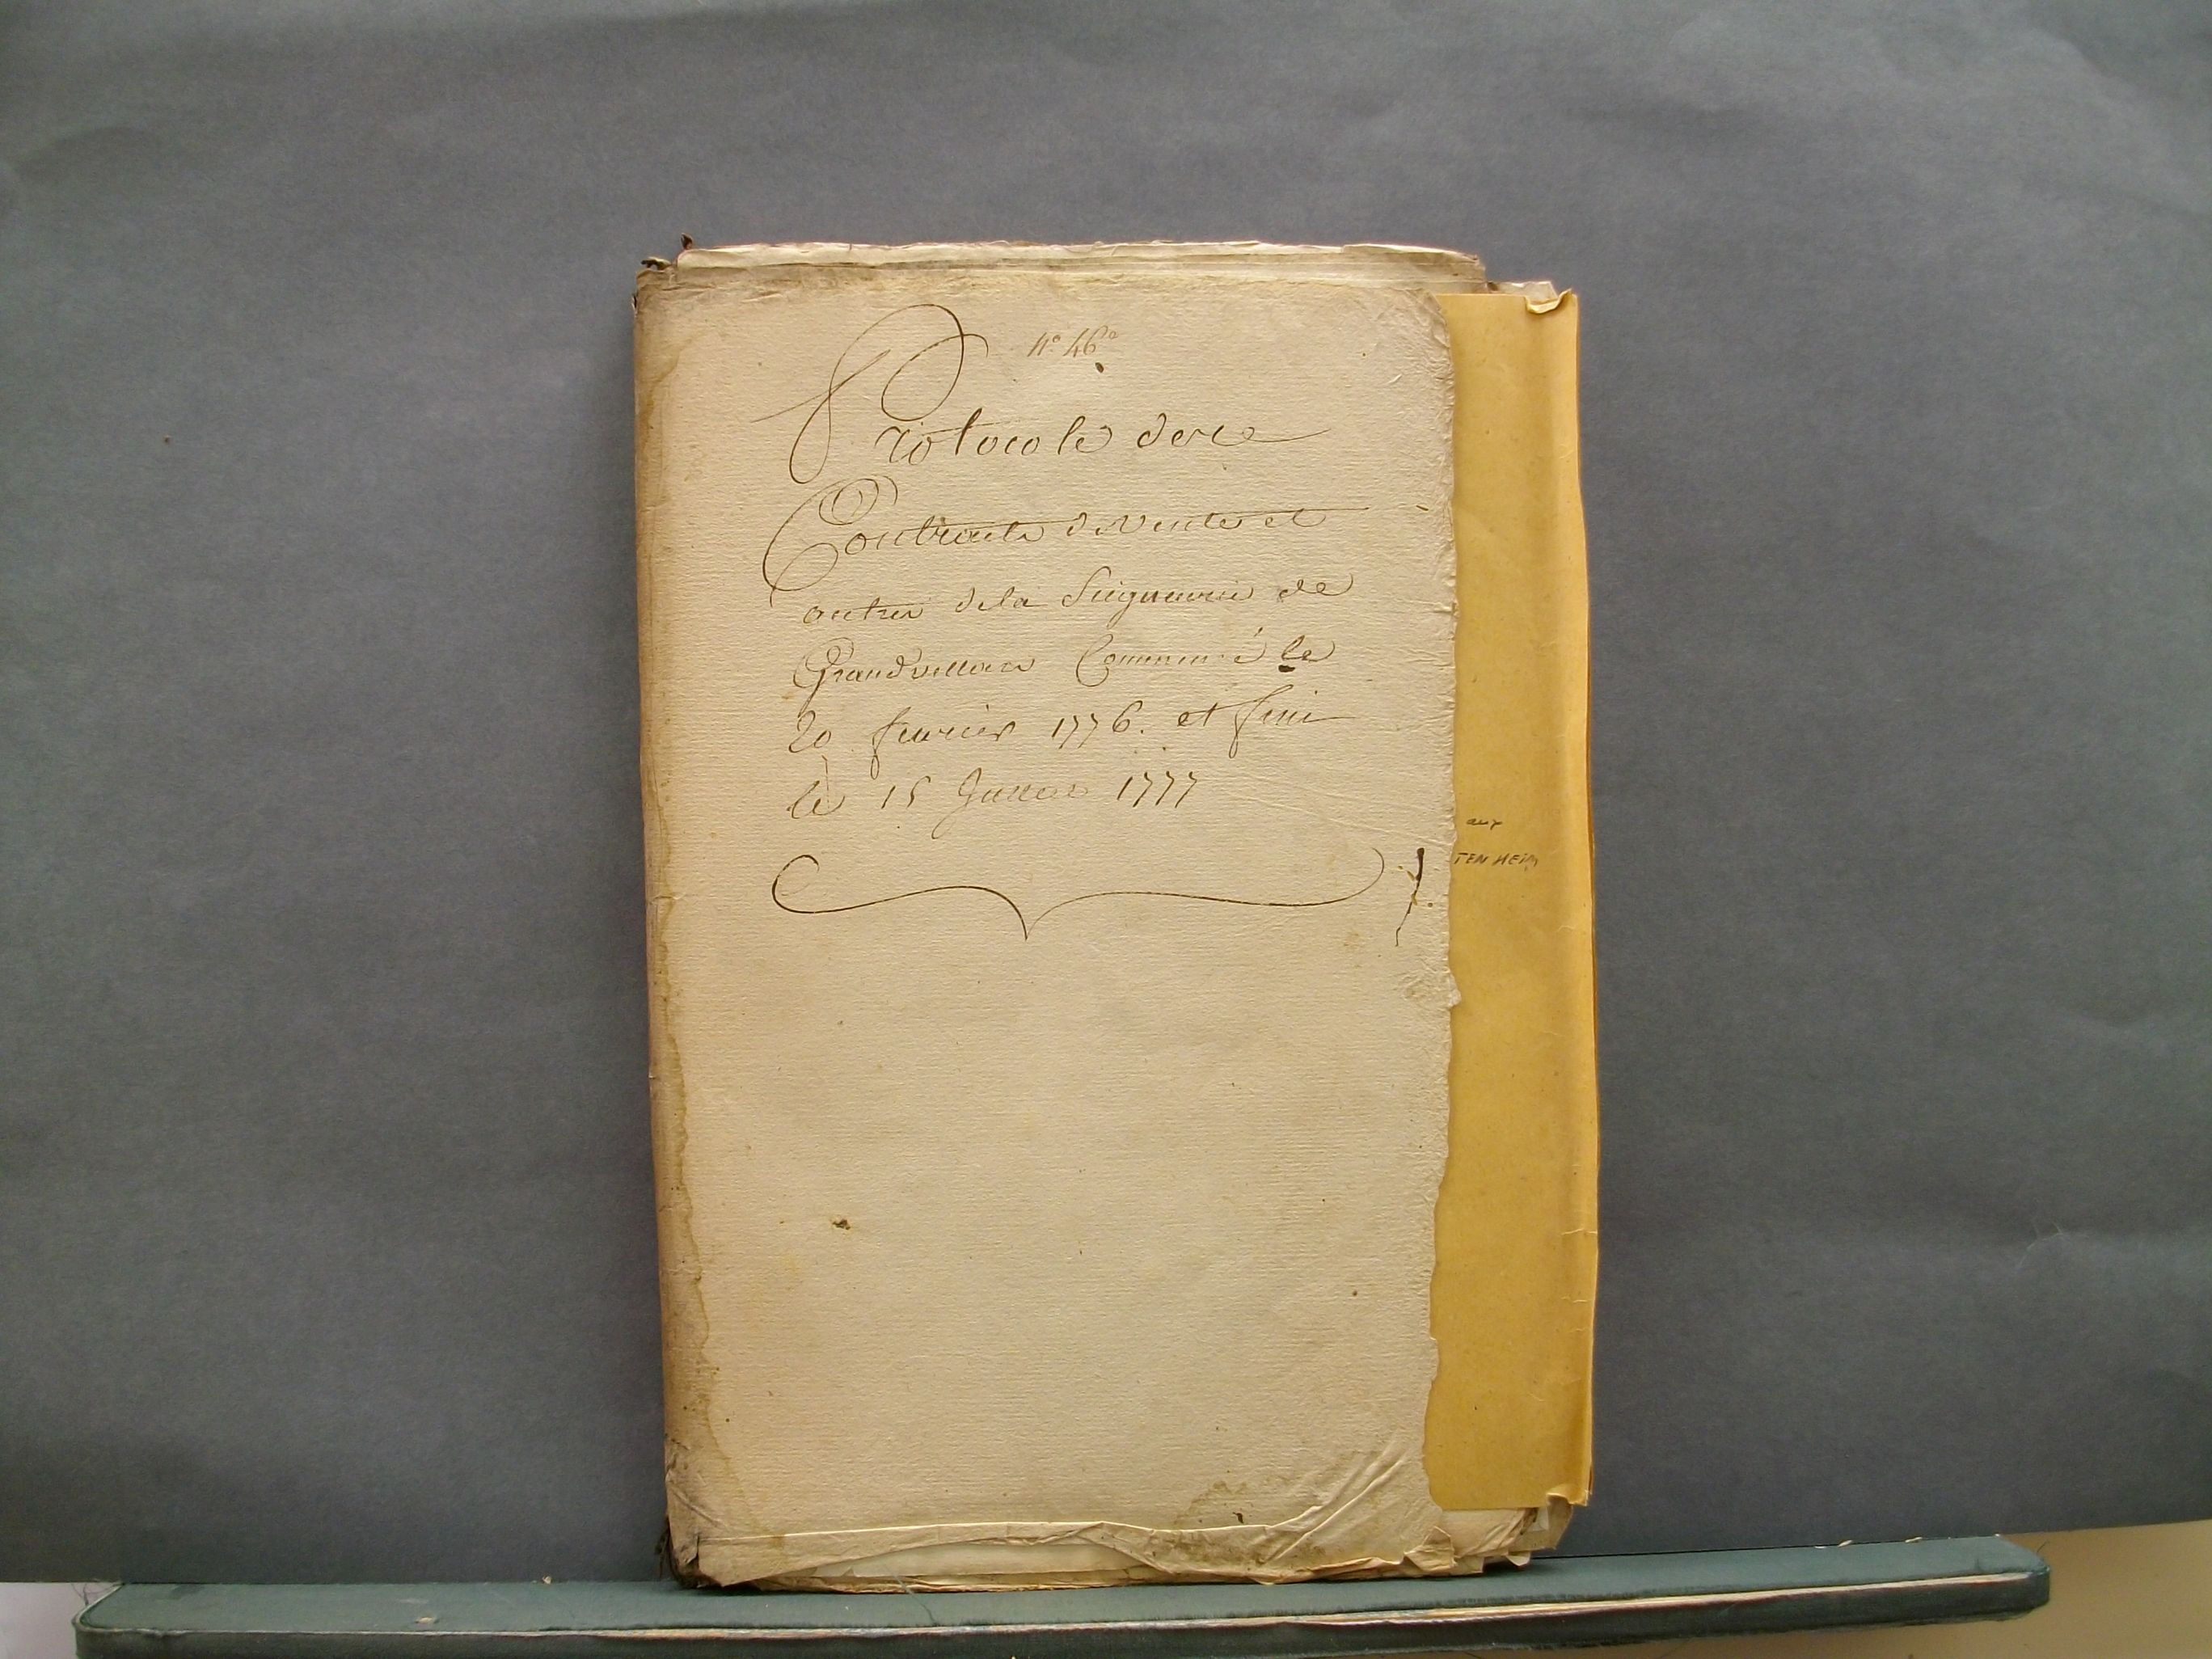 N° 46°
Protocole des
Contracts de Vente et
autres dela Seigneurie de
Grandvillars Commencé le
20 fevrier 1776. et fini
le 15 Janvier 1777
aux
TENHEIM